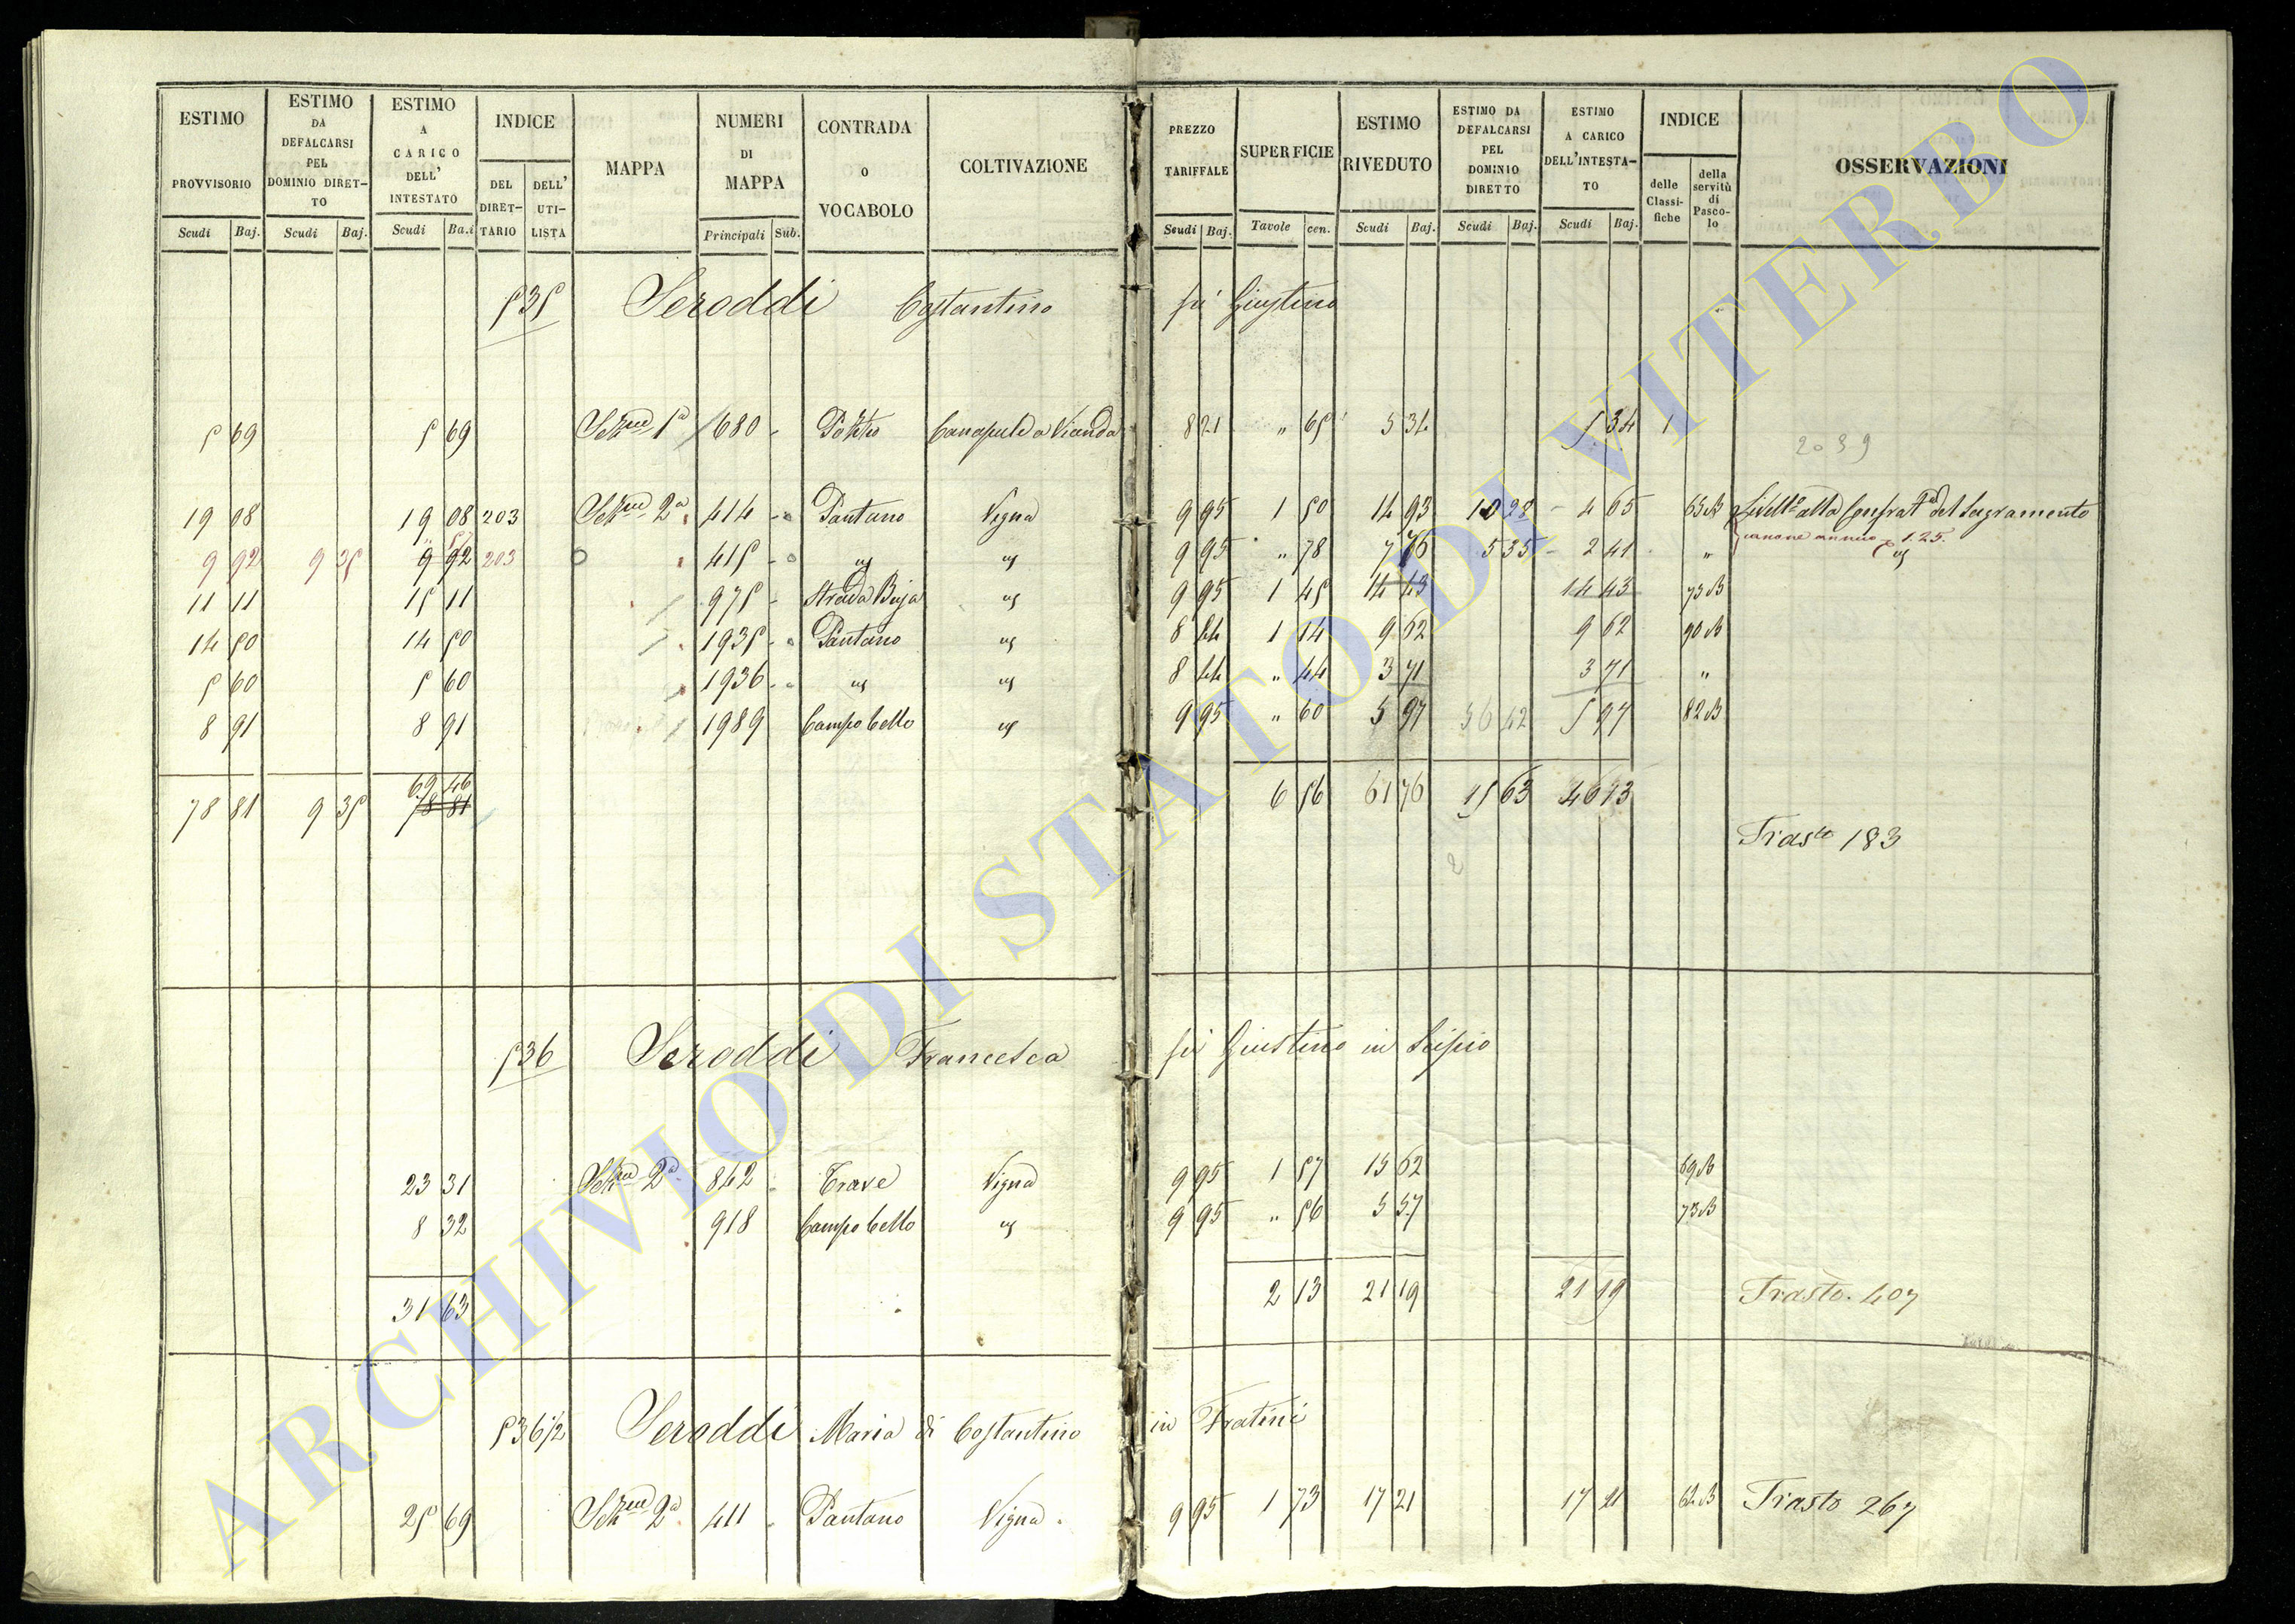 ESTIMO PROVVISORIO Scudi Baj. | ESTIMO DA DEFALCARSI PEL DOMINIO DIRET-TO Scudi Baj. | ESTIMO A CARICO DELL' INTESTATO Scudi Ba.i | INDICE DEL DIRET-TARIO DELL' UTI-LISTA | MAPPA | NUMERI DI MAPPA Principali Sub. | CONTRADA O VOCABOLO | COLTIVAZIONE | PREZZO TARIFFALE Scudi Baj. | SUPERFICIE Tavole cen. | ESTIMO RIVEDUTO Scudi Baj. | ESTIMO DA DEFALCARSI PEL DOMINIO DIRETTO Scudi Baj. | ESTIMO A CARICO DELL'INTESTA-TO Scudi Baj. | INDICE delle Classi-fiche della servitù di Pasco-lo | OSSERVAZIONI
535 Seroddi Costantino fu Giustino
5 69 5 69 Sezne 1a 1680 Canapule a Vianda 8 21 " 65 5 34 5 34 1
2039
19 08 19 08 203 Sezne 2a 414 Pantano Vigna 9 95 1 50 14 93 10 28 4 65 65 B Livello alla Confrat del Sagramento
canone annuo 1.25.
9 92 9 35 " 57 9 92 203 415 " " 9 95 " 78 7 76 5 35 2 41 " "
11 11 15 11 975 Strada Buja " 9 95 1 45 14 43 14 43 73 B
14 50 14 50 1935 Pantano " 8 44 1 14 9 62 9 62 90 B
5 60 5 60 1936 " " 8 44 " 44 3 71 3 71 "
8 91 8 91 1989 Campo bello " 9 95 " 60 5 97 36 42 5 97 82 B
69 46
78 81 9 35 78 81 6 56 61 76 15 63 46 13
Trasto 183
536 Seroddi Francesca fu Giustino in Scipio
23 31 Sezne 2a 842 Trave Vigna 9 95 1 57 15 62 69 B
8 32 918 Campo bello " 9 95 " 56 5 57 73 B
31 63 2 13 21 19 21 19 Trasto. 407
536 1/2 Seroddi Maria di Costantino in Fratini
25 69 Sezne 2a 411 Pantano Vigna 9 95 1 73 17 21 17 21 62 B Trasto 267
ARCHIVIO DI STATO DI VITERBO